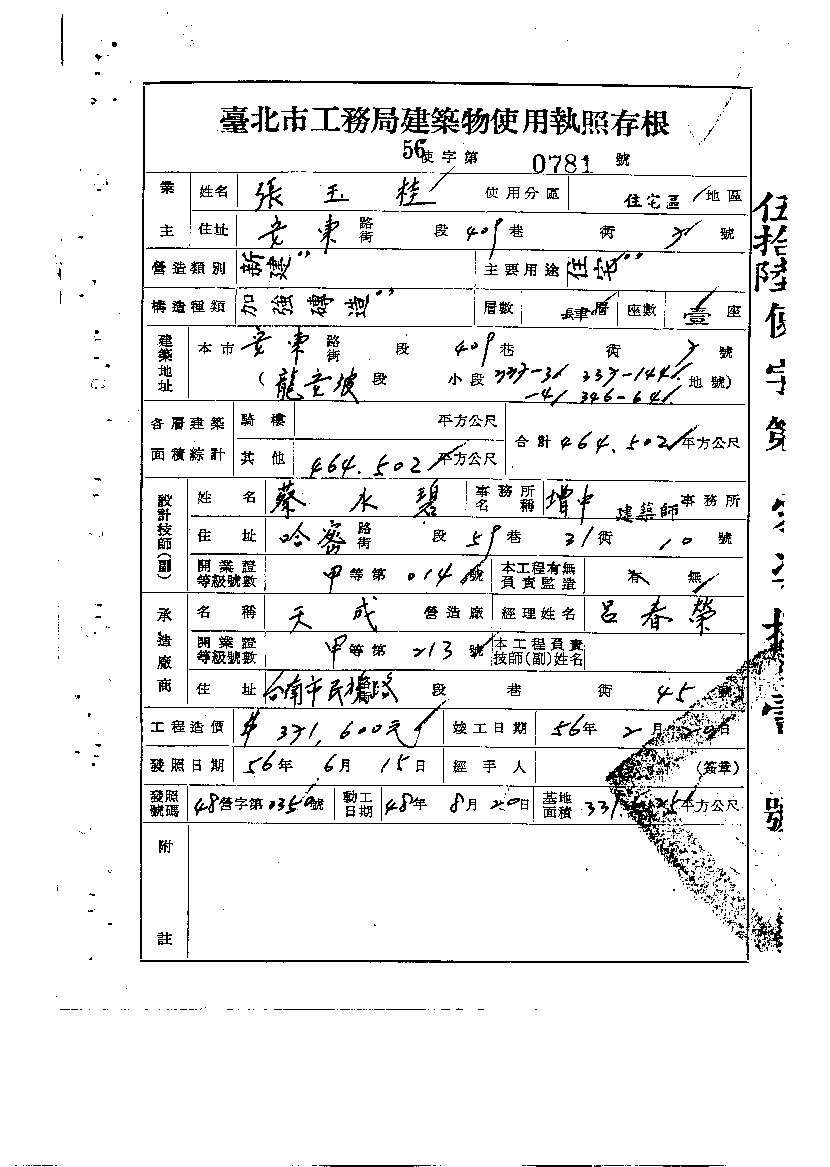 臺北市工務局建築物使用執照存根
56使字第 0781 號
業主 姓名 張玉桂 使用分區 住宅區 地區
住址 安東 路街 段 409 巷 衖 號
營造類別 新建 主要用途 住宅
構造種類 加強磚造 層數 肆層 座數 壹座
建築地址 本市 安東 路街 段 409 巷 衖 號
(龍安坡段 小段 337-144 地號)
-41 346-64
各層建築面積綜計 騎樓 平方公尺 合計 464.502 平方公尺
其他 464.502 平方公尺
設計技師(副) 姓名 蔡水碧 事務所名稱 增中 建築師 事務所
住址 哈密 路街 段 59 巷 31 衖 10 號
開業證等級號數 甲等第 014 號 本工程有無負責監造 有 無
承造廠商 名稱 天成 營造廠 經理姓名 呂春榮
開業證等級號數 甲等第 213 號 本工程負責技師(副)姓名
住址 台南市民權路 段 巷 衖 45
工程造價 $ 331,600元 竣工日期 56年 2月 20日
發照日期 56年 6月 15日 經手人 (簽章)
發照號碼 48營字第0350號 動工日期 48年 8月 20日 基地面積 平方公尺
附註
伍拾陸使字第 號